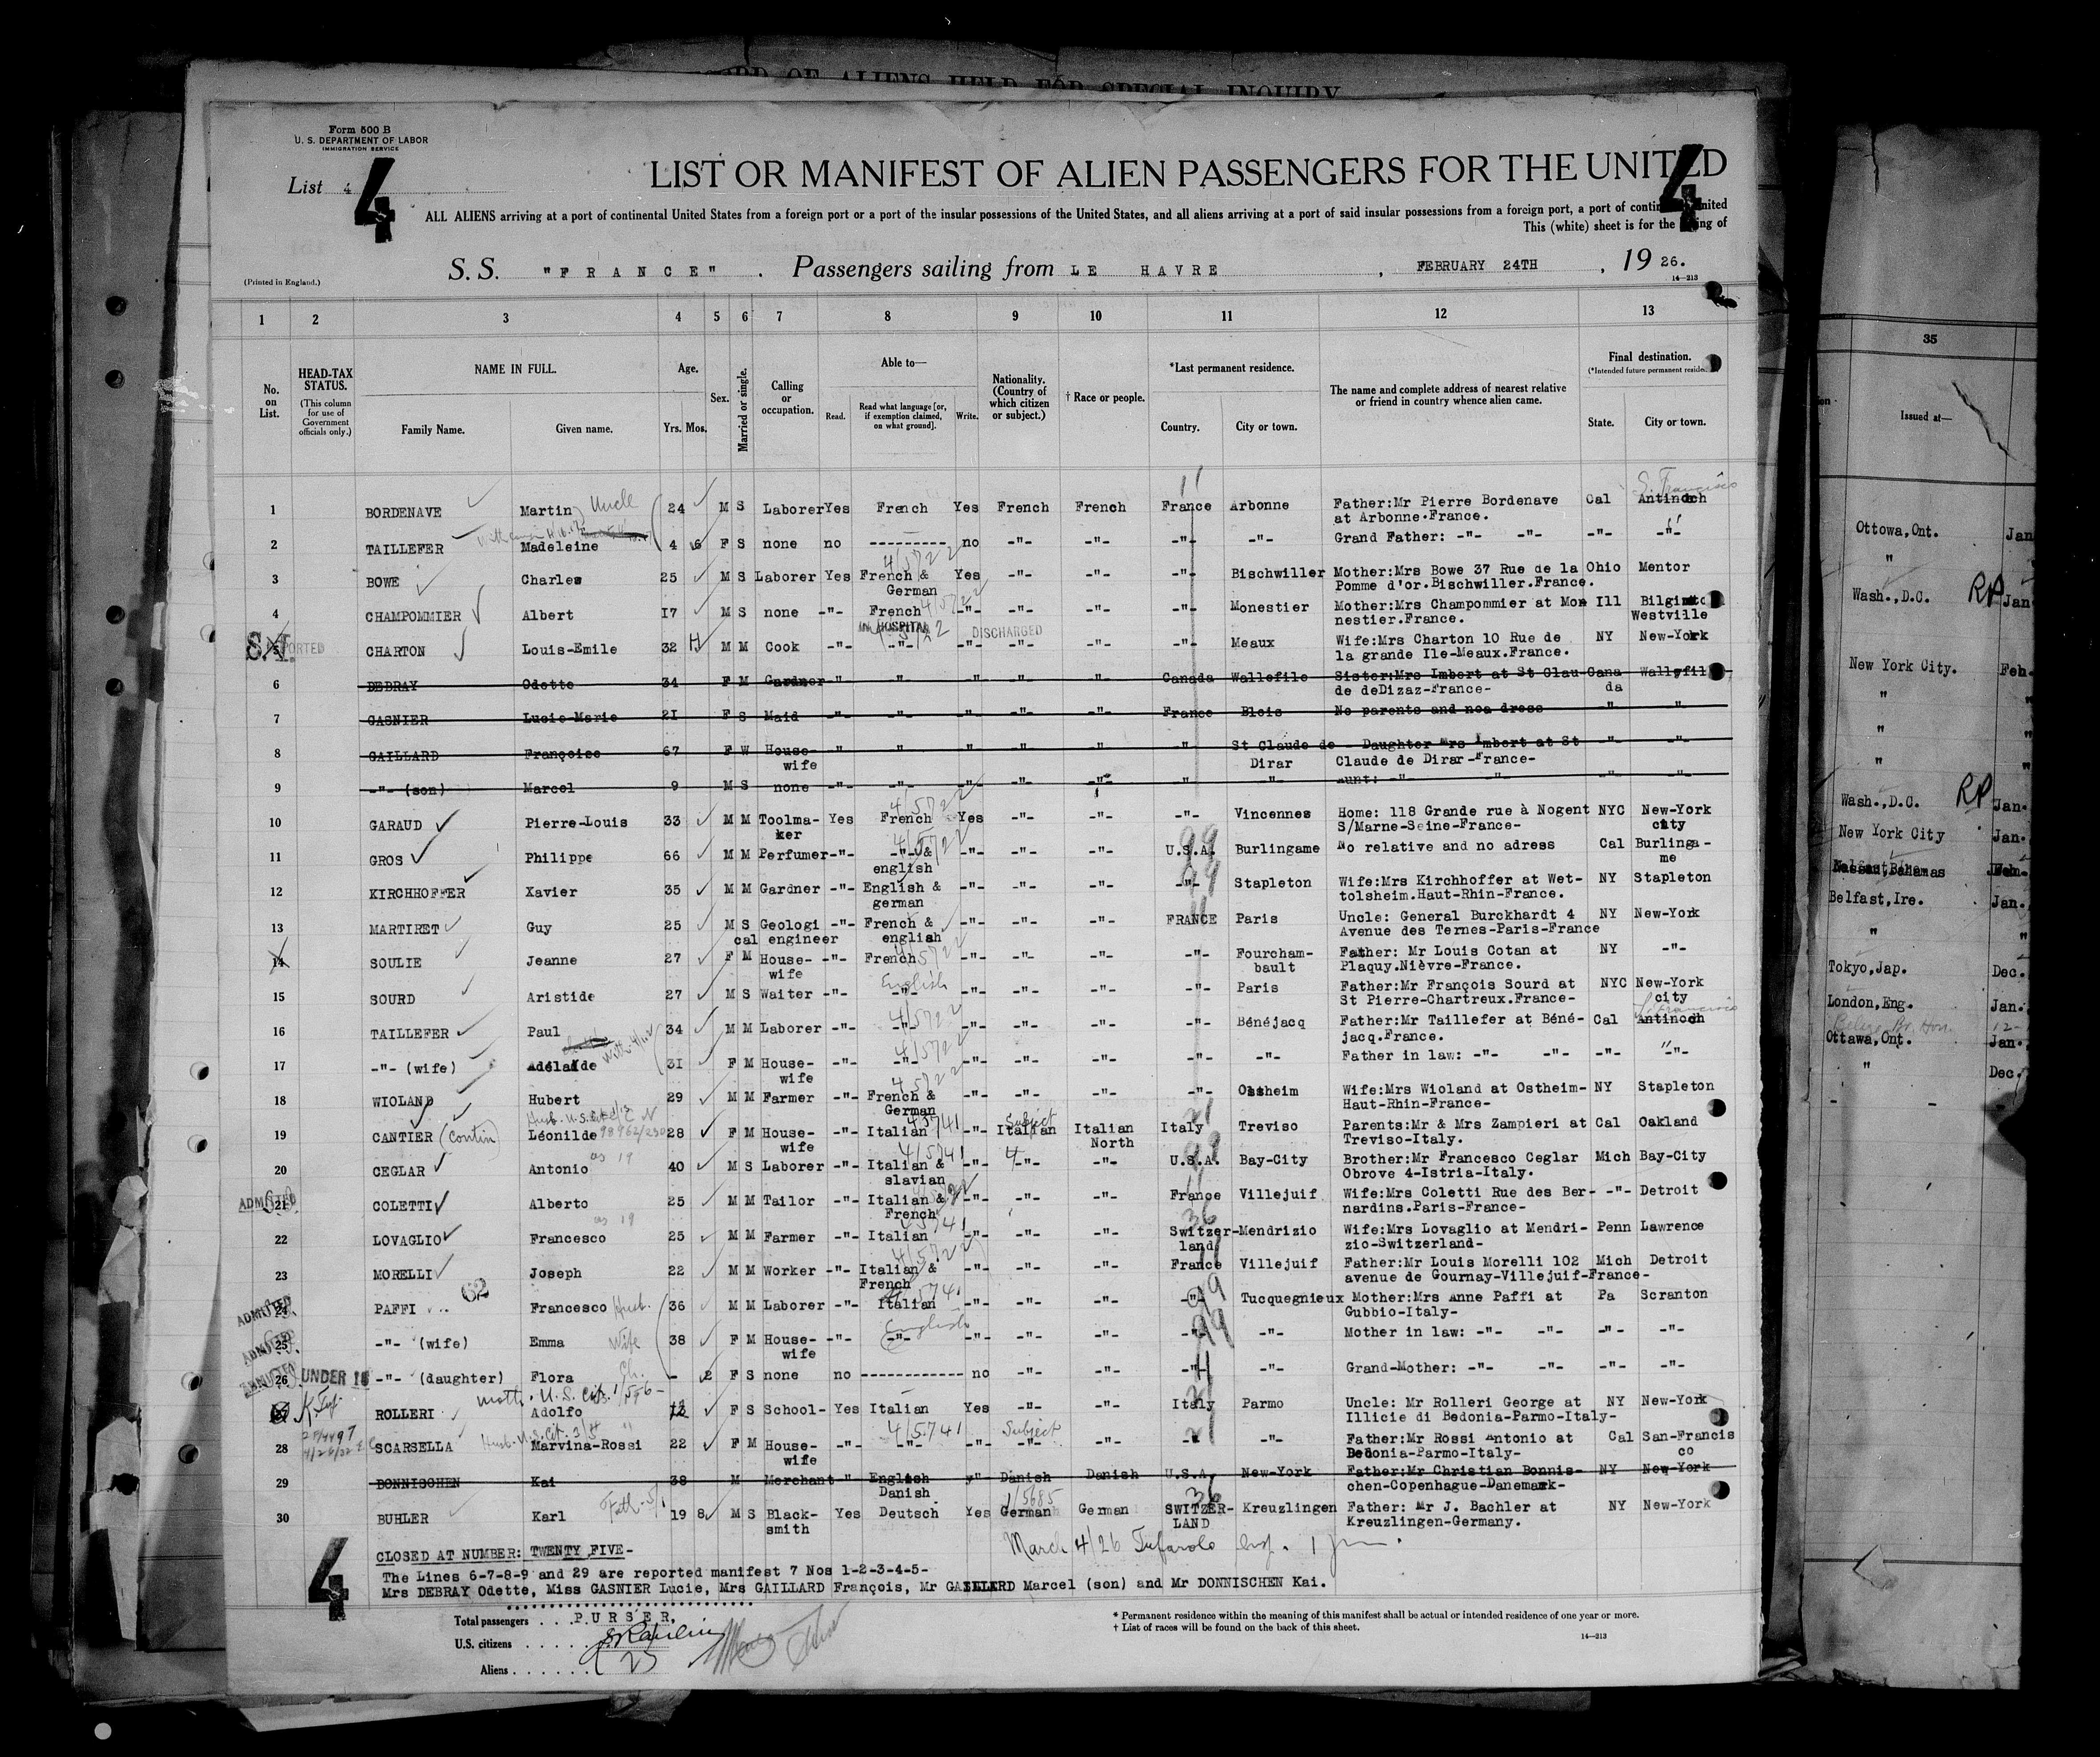 RECORD OF ALIENS HELD FOR SPECIAL INQUIRY
Form 500 B
U. S. DEPARTMENT OF LABOR
IMMIGRATION SERVICE
List 4
4
4
LIST OR MANIFEST OF ALIEN PASSENGERS FOR THE UNITED
ALL ALIENS arriving at a port of continental United States from a foreign port or a port of the insular possessions of the United States, and all aliens arriving at a port of said insular possessions from a foreign port, a port of United
This (white) sheet is for the of
S. S. "FRANCE" . Passengers sailing from LE HAVRE , FEBRUARY 24TH , 1926.
(Printed in England.)
14—213
1 2 3 4 5 6 7 8 9 10 11 12 13
No. on List.
HEAD-TAX STATUS. (This column for use of Government officials only.)
NAME IN FULL.
Family Name. Given name.
Age. Yrs. Mos.
Sex.
Married or single.
Calling or occupation.
Able to—
Read. Read what language [or, if exemption claimed, on what ground]. Write.
Nationality. (Country of which citizen or subject.)
† Race or people.
*Last permanent residence.
Country. City or town.
The name and complete address of nearest relative or friend in country whence alien came.
Final destination.
State. City or town.
1 BORDENAVE Martin Uncle 24 M S Laborer Yes French Yes French French France Arbonne Father:Mr Pierre Bordenave at Arbonne.France. Cal Antinoch S. Francisco
2 TAILLEFER Madeleine 4 6 F S none no ---------- no -"- -"- -"- -"- Grand Father: -"- -"- -"- -"-
3 BOWE Charles 25 M S Laborer Yes French & German Yes -"- -"- -"- Bischwiller Mother:Mrs Bowe 37 Rue de la Pomme d'or.Bischwiller.France. Ohio Mentor
4 CHAMPOMMIER Albert 17 M S none -"- French -"- -"- -"- -"- Monestier Mother:Mrs Champommier at Monestier.France. Ill Westville
5 CHARTON Louis-Emile 32 M M Cook -"- -"- -"- -"- -"- -"- Meaux Wife:Mrs Charton 10 Rue de la grande Ile-Meaux.France. NY New-York
HOSPITAL DISCHARGED
6 DEBRAY Odette 34 F M Gardner -"- -"- -"- -"- -"- Canada Wallefile Sister:Mrs Imbert at St Claude deDizaz-France- Canada
7 GASNIER Lucie-Marie 21 F S Maid -"- -"- -"- -"- -"- France Blois No parents and noa dress -"- -"-
8 GAILLARD Françoise 67 F W Housewife -"- -"- -"- -"- -"- St Claude de Dirar Daughter Mrs Imbert at St Claude de Dirar-France- -"- -"-
9 -"- (son) Marcel 9 M S none -"- -"- -"- -"- -"- -"- -"- Aunt: -"- -"- -"- -"-
10 GARAUD Pierre-Louis 33 M M Toolmaker Yes French Yes -"- -"- -"- Vincennes Home: 118 Grande rue à Nogent S/Marne-Seine-France- NYC New-York city
11 GROS Philippe 66 M M Perfumer -"- -"- & english -"- -"- -"- U.S.A. Burlingame No relative and no adress Cal Burlingame
12 KIRCHHOFFER Xavier 35 M M Gardner -"- English & german -"- -"- -"- -"- Stapleton Wife:Mrs Kirchhoffer at Wettolsheim.Haut-Rhin-France. NY Stapleton
13 MARTIRET Guy 25 M S Geological engineer -"- French & english -"- -"- -"- FRANCE Paris Uncle: General Burckhardt 4 Avenue des Ternes-Paris-France NY New-York
14 SOULIE Jeanne 27 F M Housewife -"- French -"- -"- -"- -"- Fourchambault Father: Mr Louis Cotan at Plaquy.Nièvre-France. NY -"-
15 SOURD Aristide 27 M S Waiter -"- English -"- -"- -"- -"- -"- Paris Father:Mr François Sourd at St Pierre-Chartreux.France- NYC New-York city
16 TAILLEFER Paul 34 M M Laborer -"- -"- -"- -"- -"- -"- Bénéjacq Father:Mr Taillefer at Bénéjacq.France. Cal Antinoch
17 -"- (wife) Adélaïde 31 F M Housewife -"- -"- -"- -"- -"- -"- -"- Father in law: -"- -"- -"- -"-
18 WIOLAND Hubert 29 M M Farmer -"- French & German -"- -"- -"- -"- Ostheim Wife:Mrs Wioland at Ostheim-Haut-Rhin-France- NY Stapleton
19 CANTIER (Contin) Léonilde 28 F M Housewife -"- Italian -"- Italian Subject Italian North Italy Treviso Parents:Mr & Mrs Zampieri at Treviso-Italy. Cal Oakland
20 CEGLAR Antonio 40 M S Laborer -"- Italian & slavian -"- -"- -"- U.S.A. Bay-City Brother:Mr Francesco Ceglar Obrove 4-Istria-Italy. Mich Bay-City
21 ADMITTED COLETTI Alberto 25 M M Tailor -"- Italian & French -"- -"- -"- France Villejuif Wife:Mrs Coletti Rue des Bernardins.Paris-France- -"- Detroit
22 LOVAGLIO Francesco 25 M M Farmer -"- Italian -"- -"- -"- Switzerland Mendrizio Wife:Mrs Lovaglio at Mendrizio-Switzerland- Penn Lawrence
23 MORELLI Joseph 22 M M Worker -"- Italian & French -"- -"- -"- France Villejuif Father:Mr Louis Morelli 102 avenue de Gournay-Villejuif-France- Mich Detroit
62
24 ADMITTED PAFFI Francesco Husb. 36 M M Laborer -"- Italian -"- -"- -"- -"- Tucquegnieux Mother:Mrs Anne Paffi at Gubbio-Italy- Pa Scranton
25 ADMITTED -"- (wife) Emma Wife 38 F M Housewife -"- English -"- -"- -"- -"- -"- -"- Mother in law: -"- -"- -"- -"-
26 ADMITTED UNDER 16 -"- (daughter) Flora Ch. - 2 F S none no ------------ no -"- -"- -"- -"- Grand-Mother: -"- -"- -"- -"-
27 ROLLERI Adolfo F S School- Yes Italian Yes -"- -"- Italy Parmo Uncle: Mr Rolleri George at Illicie di Bedonia-Parmo-Italy- NY New-York
28 SCARSELLA Marvina-Rossi 22 F M Housewife -"- -"- -"- Subject -"- -"- -"- -"- Father:Mr Rossi Antonio at Bedonia-Parmo-Italy- Cal San-Francisco
29 DONNISCHEN Kai 38 M Merchant -"- English Danish -"- Danish Danish U.S.A. New-York Father:Mr Christian Bonnischen-Copenhague-Danemark- NY New-York
30 BUHLER Karl 19 8 M S Blacksmith Yes Deutsch Yes German German SWITZERLAND Kreuzlingen Father: Mr J. Bachler at Kreuzlingen-Germany. NY New-York
March 4/26
CLOSED AT NUMBER: TWENTY FIVE-
The Lines 6-7-8-9 and 29 are reported manifest 7 Nos 1-2-3-4-5-
Mrs DEBRAY Odette, Miss GASNIER Lucie, Mrs GAILLARD François, Mr GAILLARD Marcel (son) and Mr DONNISCHEN Kai.
4
Total passengers . . . PURSER,
U.S. citizens . . . . .
Aliens . . . . . . 25
* Permanent residence within the meaning of this manifest shall be actual or intended residence of one year or more.
† List of races will be found on the back of this sheet.
14—213
35
Issued at—
Ottowa,Ont. Jan
"
Wash.,D.C. RP Jan
New York City. Feb.
"
"
"
Wash.,D.C. RP Jan.
New York City Jan.
Belfast,Ire. Jan.
"
Tokyo,Jap. Dec.
London,Eng. Jan.
Ottawa,Ont. Jan.
" Dec.